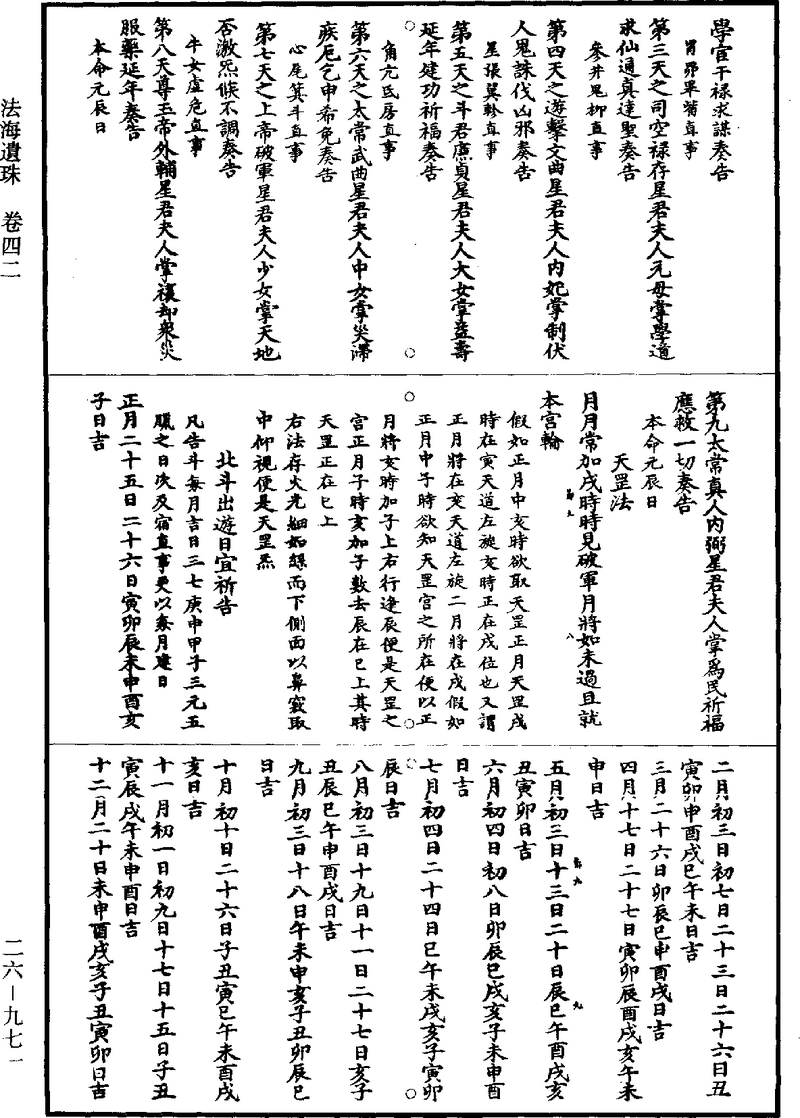 學官干祿求謀奏告
胃昴畢觜直事
第三天之司空祿存星君夫人元母掌學道
求仙通真達聖奏告
參井鬼柳直事
第四天之遊擊文曲星君夫人內妃掌制伏
人鬼誅伐凶邪奏告
星張翼軫直事
第五天之斗君廉貞星君夫人大女掌益壽
延年建功祈福奏告
角亢氐房直事
第六天之太常武曲星君夫人中女掌災滯
疾厄乞申希免奏告
心尾箕斗直事
第七天之上帝破軍星君夫人少女掌天地
否激炁候不調奏告
牛女虛危直事
第八天尊玉帝外輔星君夫人掌禳却眾災
服藥延年奏告
本命元辰日
第九太常真人內弼星君夫人掌為民祈福
應救一切奏告
本命元辰日
天罡法
月月常加戌時時見破軍月將如未過且就
本宮輪
假如正月中亥時欲取天罡正月天罡戌
時在寅天道左旋亥時正在戌位也又謂
正月將在亥天道左旋二月將在戌假如
正月中子時欲知天罡宮之所在便以正
月將亥時加子上右行逢辰便是天罡之
宮正月子時亥加子數去辰在巳上其時
天罡正在巳上
右法存火光細如線而下側面以鼻竅取
中仰視便是天罡炁
北斗出遊日宜祈告
凡告斗每月吉日三七庚申甲子三元五
臘之日次及宿直事更以每月建日
正月二十五日二十六日寅卯辰未申酉亥
子日吉
二月初三日初七日二十三日二十六日丑
寅卯申酉戌巳午未日吉
三月二十六日卯辰巳申酉戌日吉
四月十七日二十七日寅卯辰酉戌亥午未
申日吉
五月初三日十三日二十日辰巳午酉戌亥
丑寅卯日吉
六月初四日初八日卯辰巳戌亥子未申酉
日吉
七月初四日二十四日巳午未戌亥子寅卯
辰日吉
八月初三日十九日十一日二十七日亥子
丑辰巳午申酉戌日吉
九月初三日十八日午未申亥子丑卯辰巳
日吉
十月初十日二十六日子丑寅巳午未酉戌
亥日吉
十一月初一日初九日十七日十五日子丑
寅辰戌午未申酉日吉
十二月二十日未申酉戌亥子丑寅卯日吉
法海遺珠 卷四二
二六—九七一